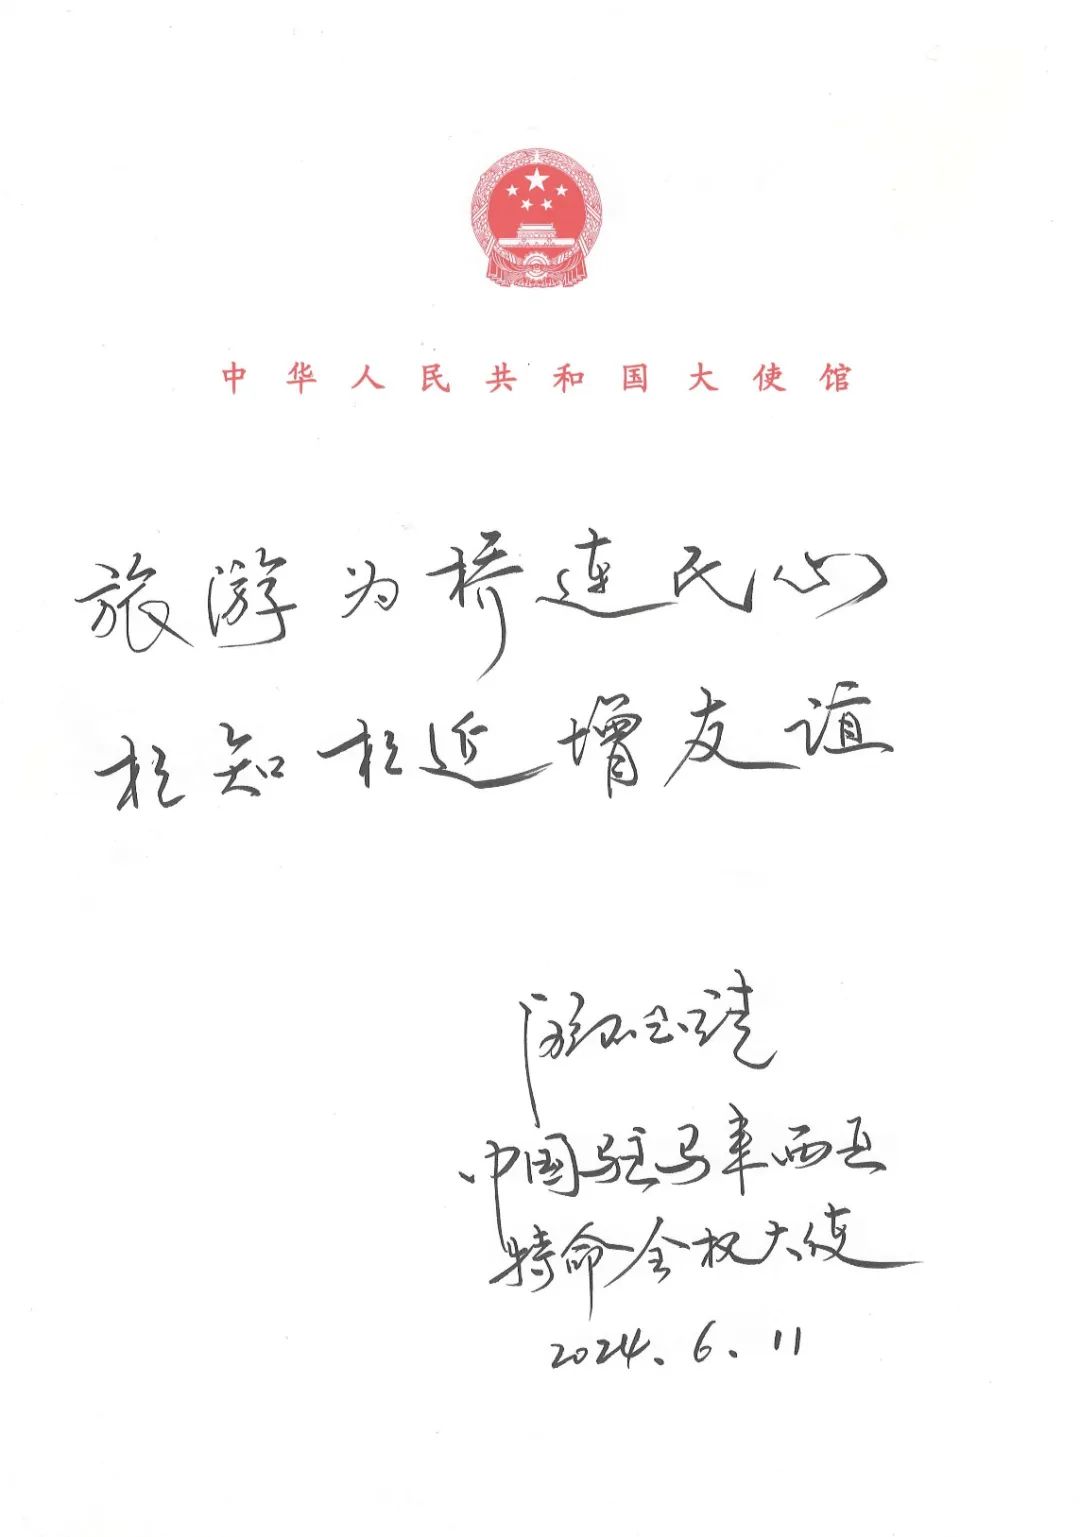 中华人民共和国大使馆
旅游为桥连民心
相知相近增友谊
欧阳玉靖
中国驻马来西亚
特命全权大使
2024.6.11